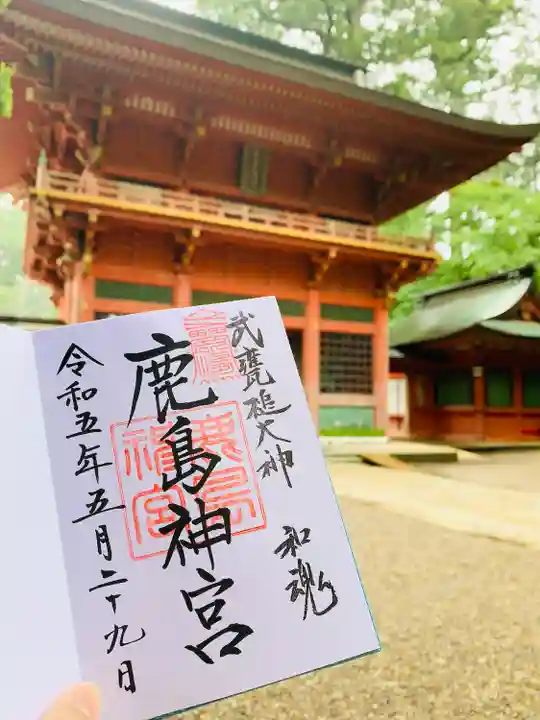 武甕槌大神
和魂
鹿島神宮
鹿島神宮
令和五年五月二十九日